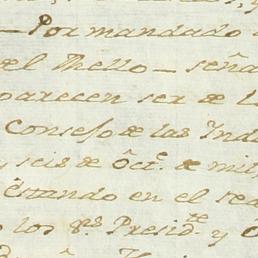 Por mandado
del Mello — seña
parecen ser de l
Consejo de las Ind
y seis de Oct.e de mil
estando en el rea
los S.res Presid.te y O